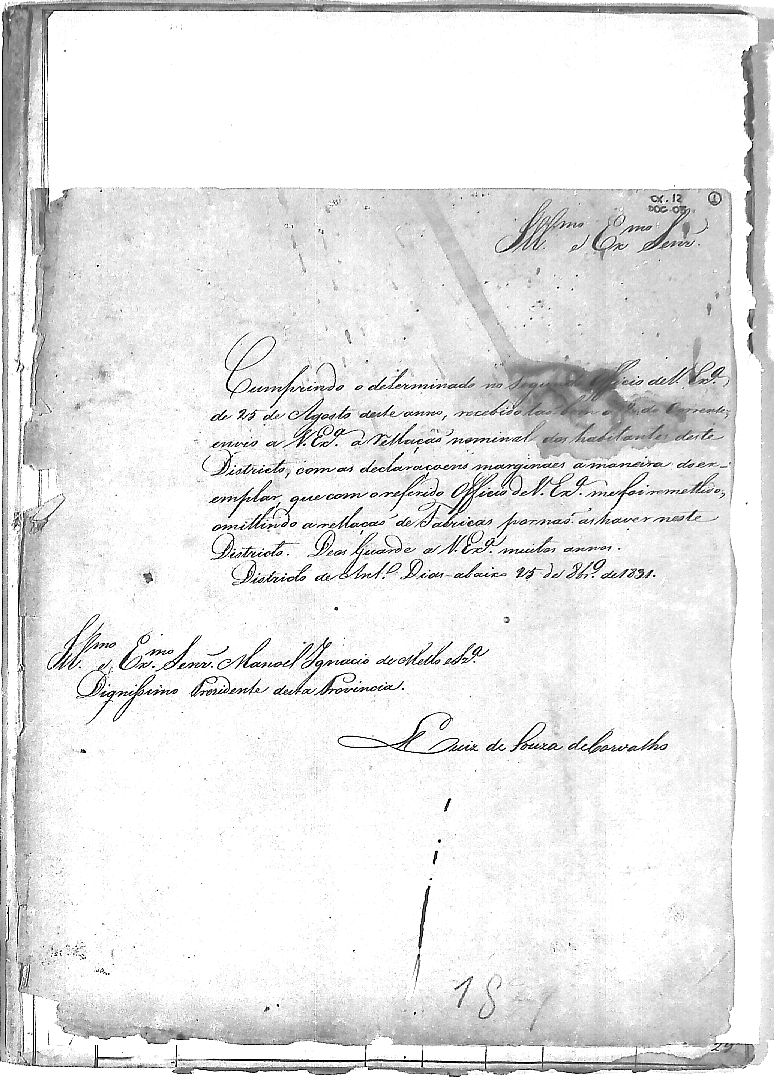 CX. 12
DOC. 03
1
Ill.mo e Ex.mo Senr.
Cumprindo o determinado no segundo Officio de V. Ex.ª,
de 25 de Agosto deste anno, recebido do corrente,
envio a V. Ex.ª a rellação nominal dos habitantes deste
Districto, com as declaracoens marginaes a maneira do ex-
emplar, que com o referido Officio de V. Ex.ª me foi remettido,
omittindo a rellação de Fabricas por não as haver neste
Districto. Deos Guarde a V. Ex.ª muitos annos.
Districto de Ant.º Dias abaixo 25 de 8br.º de 1831.
Ill.mo e Ex.mo Senr. Manoel Ignacio de Mello e Sz.ª
Dignissimo Prezidente desta Provincia.
Luiz de Souza de Carvalho